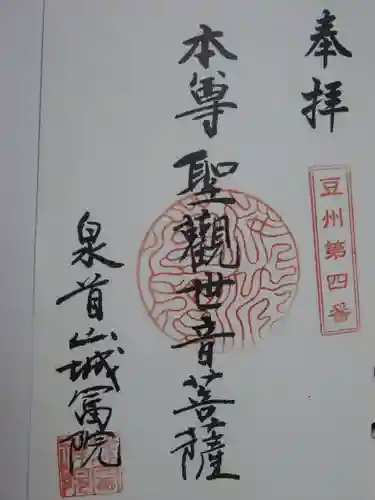 奉拝
豆州第四番
本尊聖觀世音菩薩
泉首山城富院